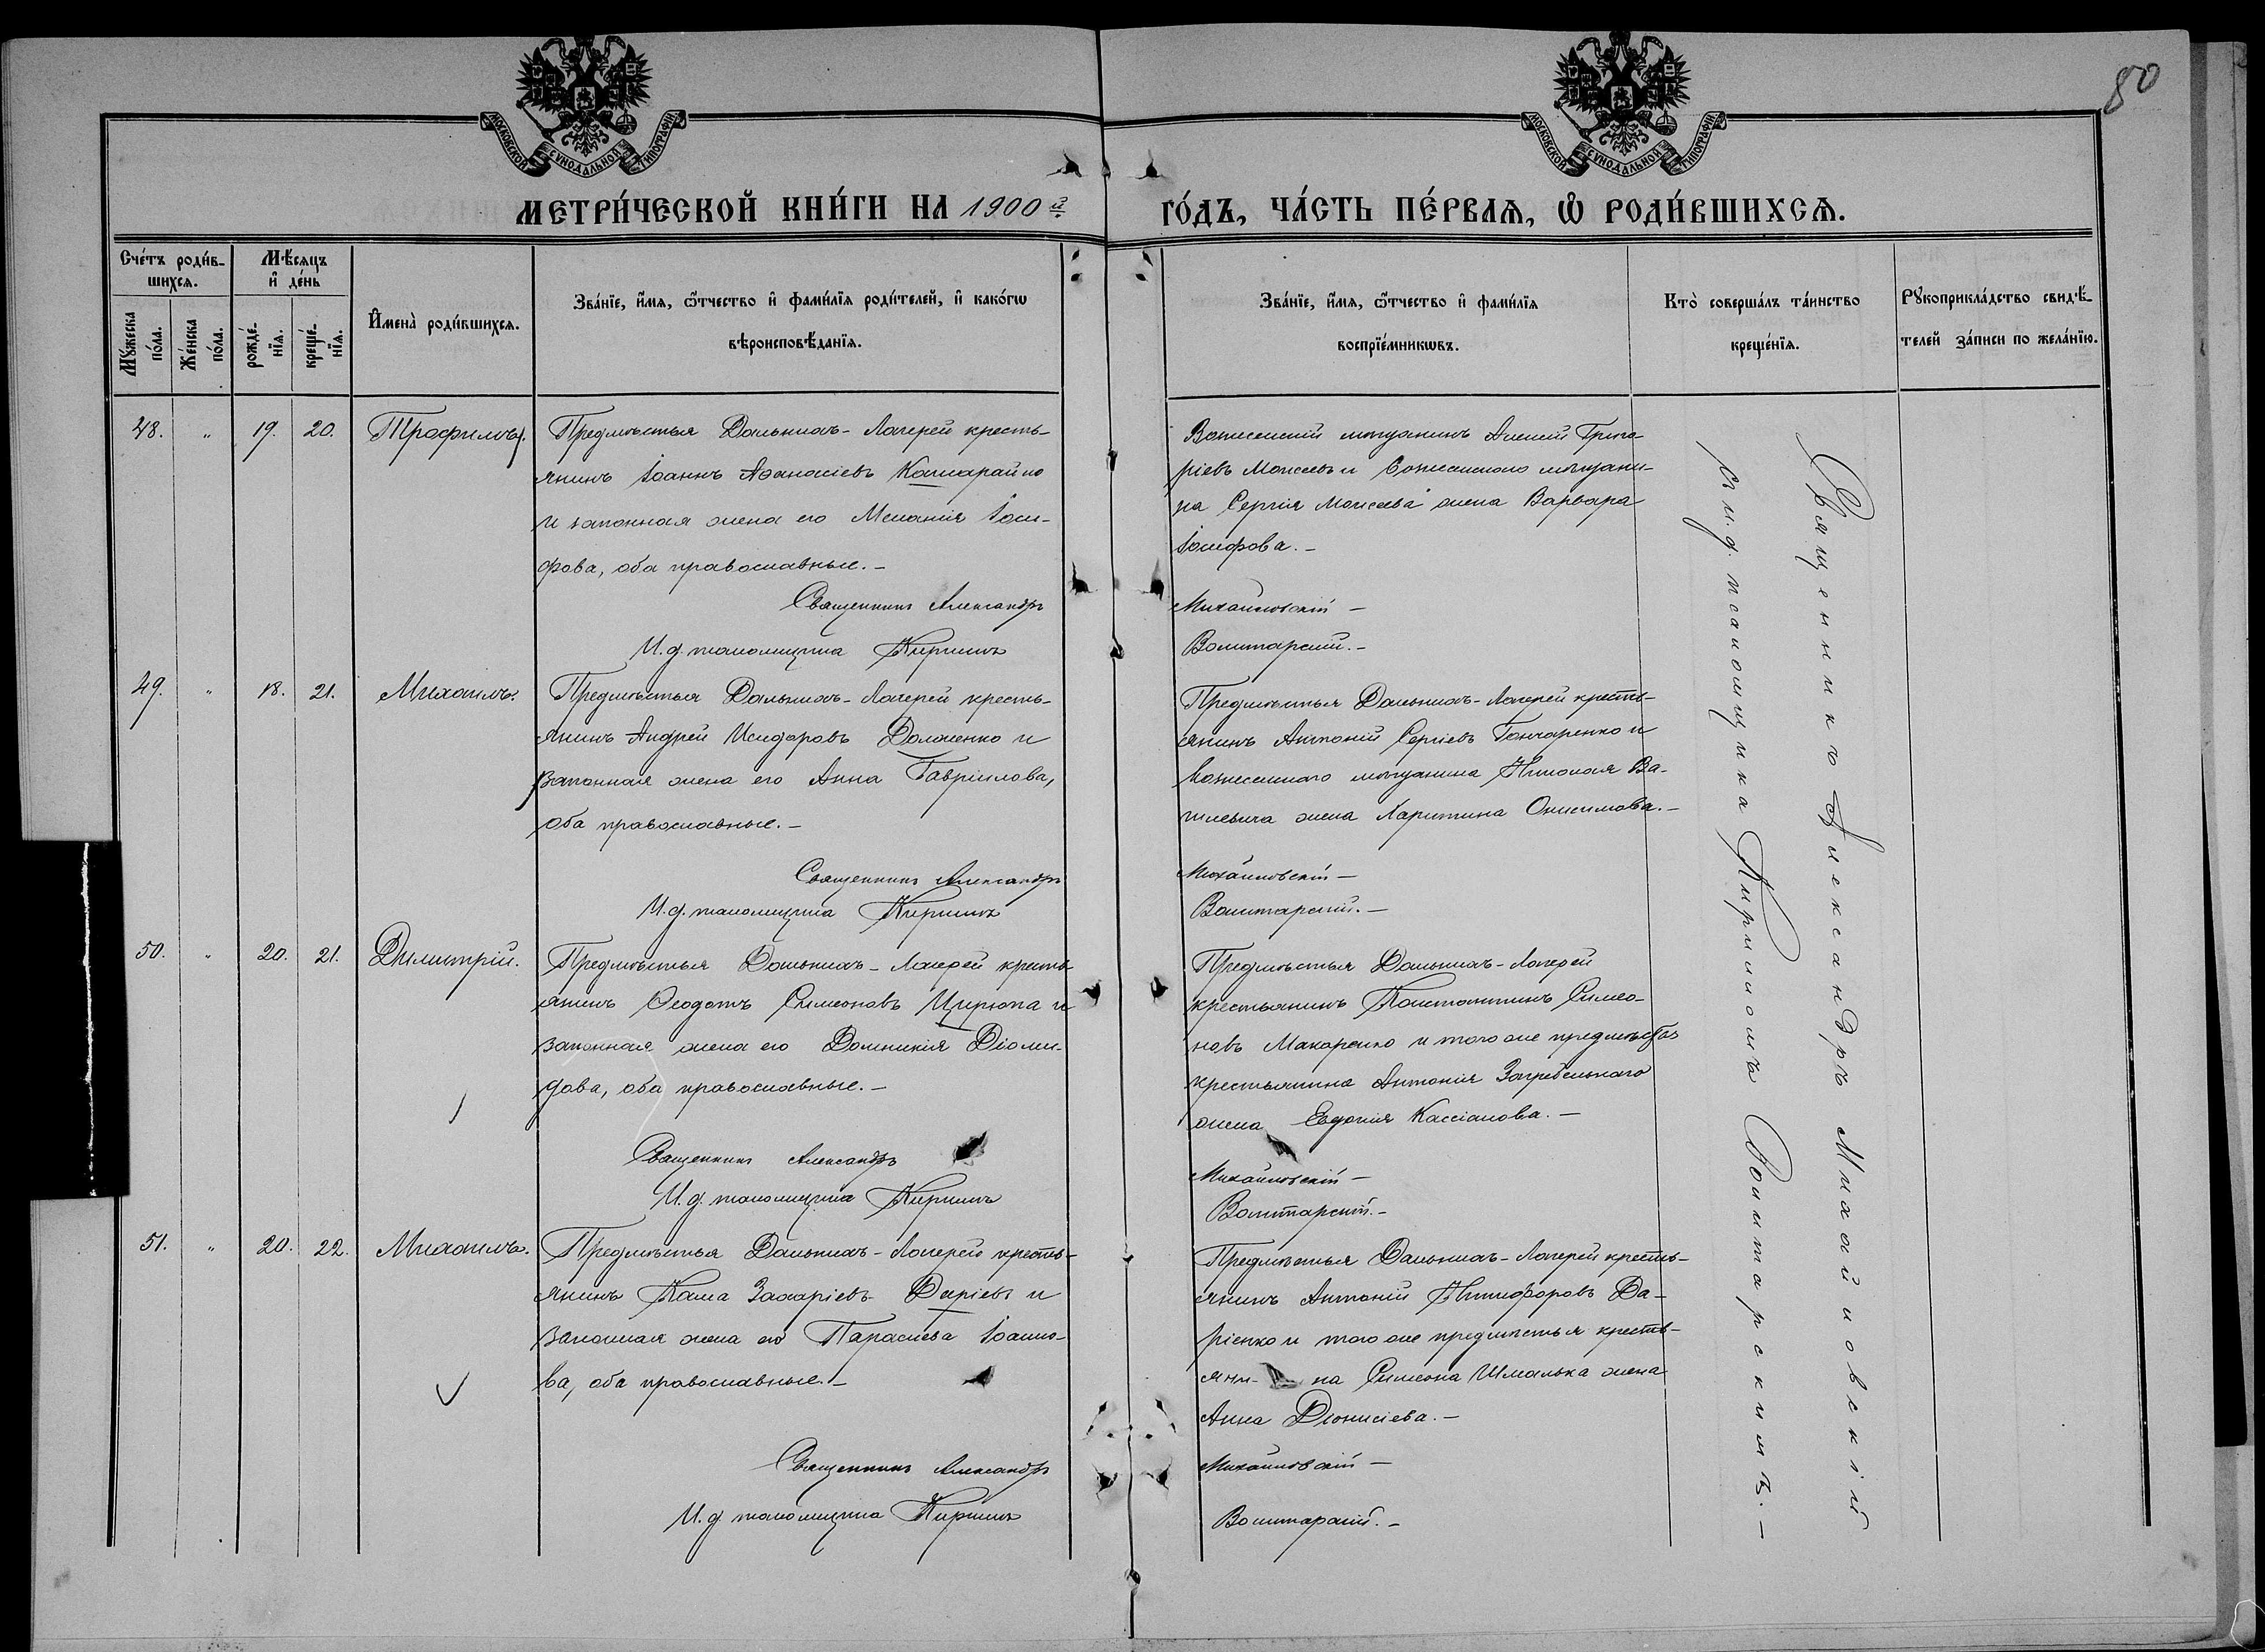 80
МОСКОВСКОЙ СѴНОДАЛЬНОЙ ТИПОГРАФІИ
МОСКОВСКОЙ СѴНОДАЛЬНОЙ ТИПОГРАФІИ
МЕТРИ́ЧЕСКОЙ КНИ́ГИ НА 1900й
ГО́ДЪ, ЧА́СТЬ ПЕ́РВАѦ, Ѽ РОДИ́ВШИХСѦ.
Сче́тъ роди́в-
шихсѧ.
Мꙋ́жеска по́ла.
Же́нска по́ла.
Мѣ́сѧцъ
и҆ де́нь
рожде́-
нїѧ.
креще́-
нїѧ.
И҆мена̀ роди́вшихсѧ.
Зва́нїе, и҆́мѧ, ѻ҆́тчество и҆ фами́лїѧ роди́телей, и҆ како́гѡ
вѣроисповѣ́данїѧ.
Зва́нїе, и҆́мѧ, ѻ҆́тчество и҆ фами́лїѧ
воспрїе́мникѡвъ.
Кто̀ соверша́лъ та́инство
креще́нїѧ.
Рꙋкоприкла́дство свидѣ́-
телей за́писи по жела́нїю.
48. " 19. 20. Трофимъ.
Предмѣстья Дальнихъ-Лагерей кресть-
янинъ Іоаннъ Аѳанасіевъ Кашарайло
и законная жена его Меланія Іоси-
фова, оба православные.-
Священникъ Александръ
И.д. псаломщика Кириллъ
Вознесенскій мѣщанинъ Алексій Григо-
ріевъ Моисеевъ и Вознесенскаго мѣщани-
на Сергія Моисеева жена Варвара
Іосифова.-
Михайловскій -
Волитарскій.-
49. " 18. 21. Михаилъ.
Предмѣстья Дальнихъ-Лагерей кресть-
янинъ Андрей Исидоровъ Доложенко и
законная жена его Анна Гавріилова,
оба православные.-
Священникъ Александръ
И.д. псаломщика Кириллъ
Предмѣстья Дальнихъ-Лагерей кресть-
янинъ Антоній Сергіевъ Гончаренко и
Вознесенскаго мѣщанина Николая Ва-
силевича жена Харитина Онисимова.-
Михайловскій -
Волитарскій.-
50. " 20. 21. Димитрій.
Предмѣстья Дальнихъ-Лагерей кресть-
янинъ Ѳеодотъ Симеоновъ Цирюпа и
законная жена его Домникія Діоми-
дова, оба православные.-
Священникъ Александръ
И.д. псаломщика Кириллъ
Предмѣстья Дальнихъ-Лагерей
крестьянинъ Константинъ Симео-
новъ Макаренко и того же предмѣстья
крестьянина Антонія Загребельнаго
жена Евдокія Кассіанова.-
Михайловскій -
Волитарскій.-
51. " 20. 22. Михаилъ.
Предмѣстья Дальнихъ-Лагерей кресть-
янинъ Захаріевъ Даріевъ и
законная жена его Параскева Іоанно-
ва, оба православные.-
Священникъ Александръ
И.д. псаломщика Кириллъ
Предмѣстья Дальнихъ-Лагерей кресть-
янинъ Антоній Никифоровъ Да-
ріенко и того же предмѣстья кресть-
яни- на Симеона Шмалька жена
Анна Діонисіева.-
Михайловскій -
Волитарскій.-
Священникъ Александръ Михайловскій
съ и.д. псаломщика Кирилломъ Волитарскимъ.-